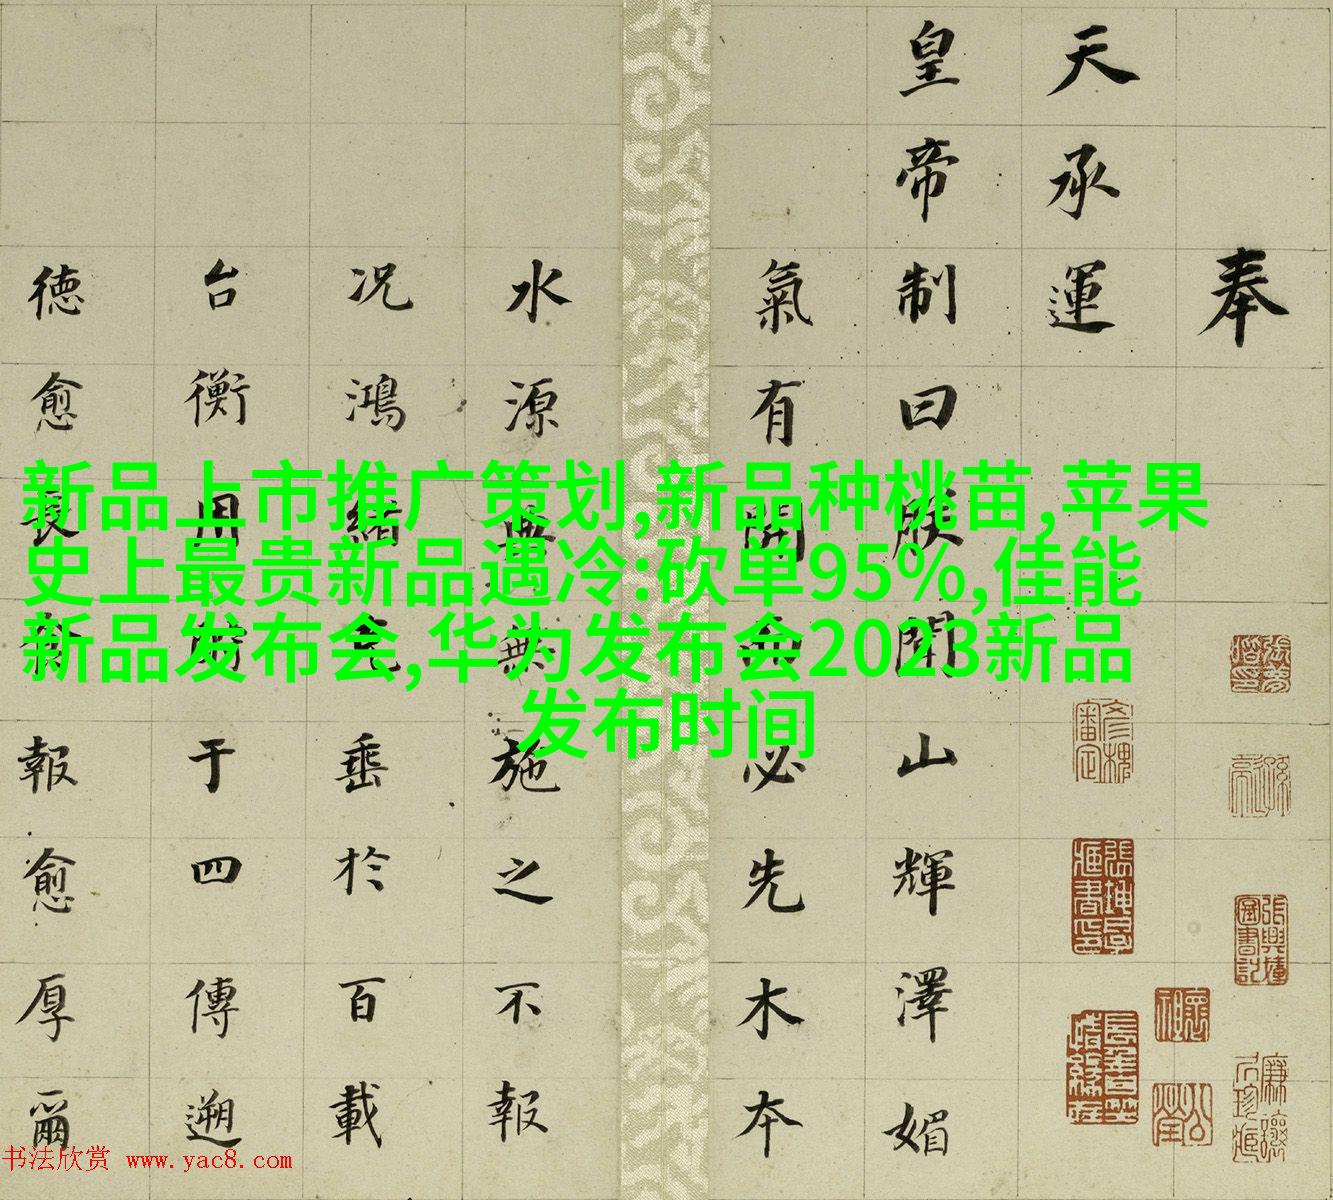 奉
天承運
皇帝制曰朕聞山輝澤媚
氣有開必先木本
水源無施之不報
况鴻緒克垂於百載
台衡用于四傳遡
德愈長報愈厚爾
新品上市推广策划,新品种桃苗,苹果
史上最贵新品遇冷:砍单95%,佳能
新品发布会,华为发布会2023新品
发布时间
书法欣赏 www.yac8.com